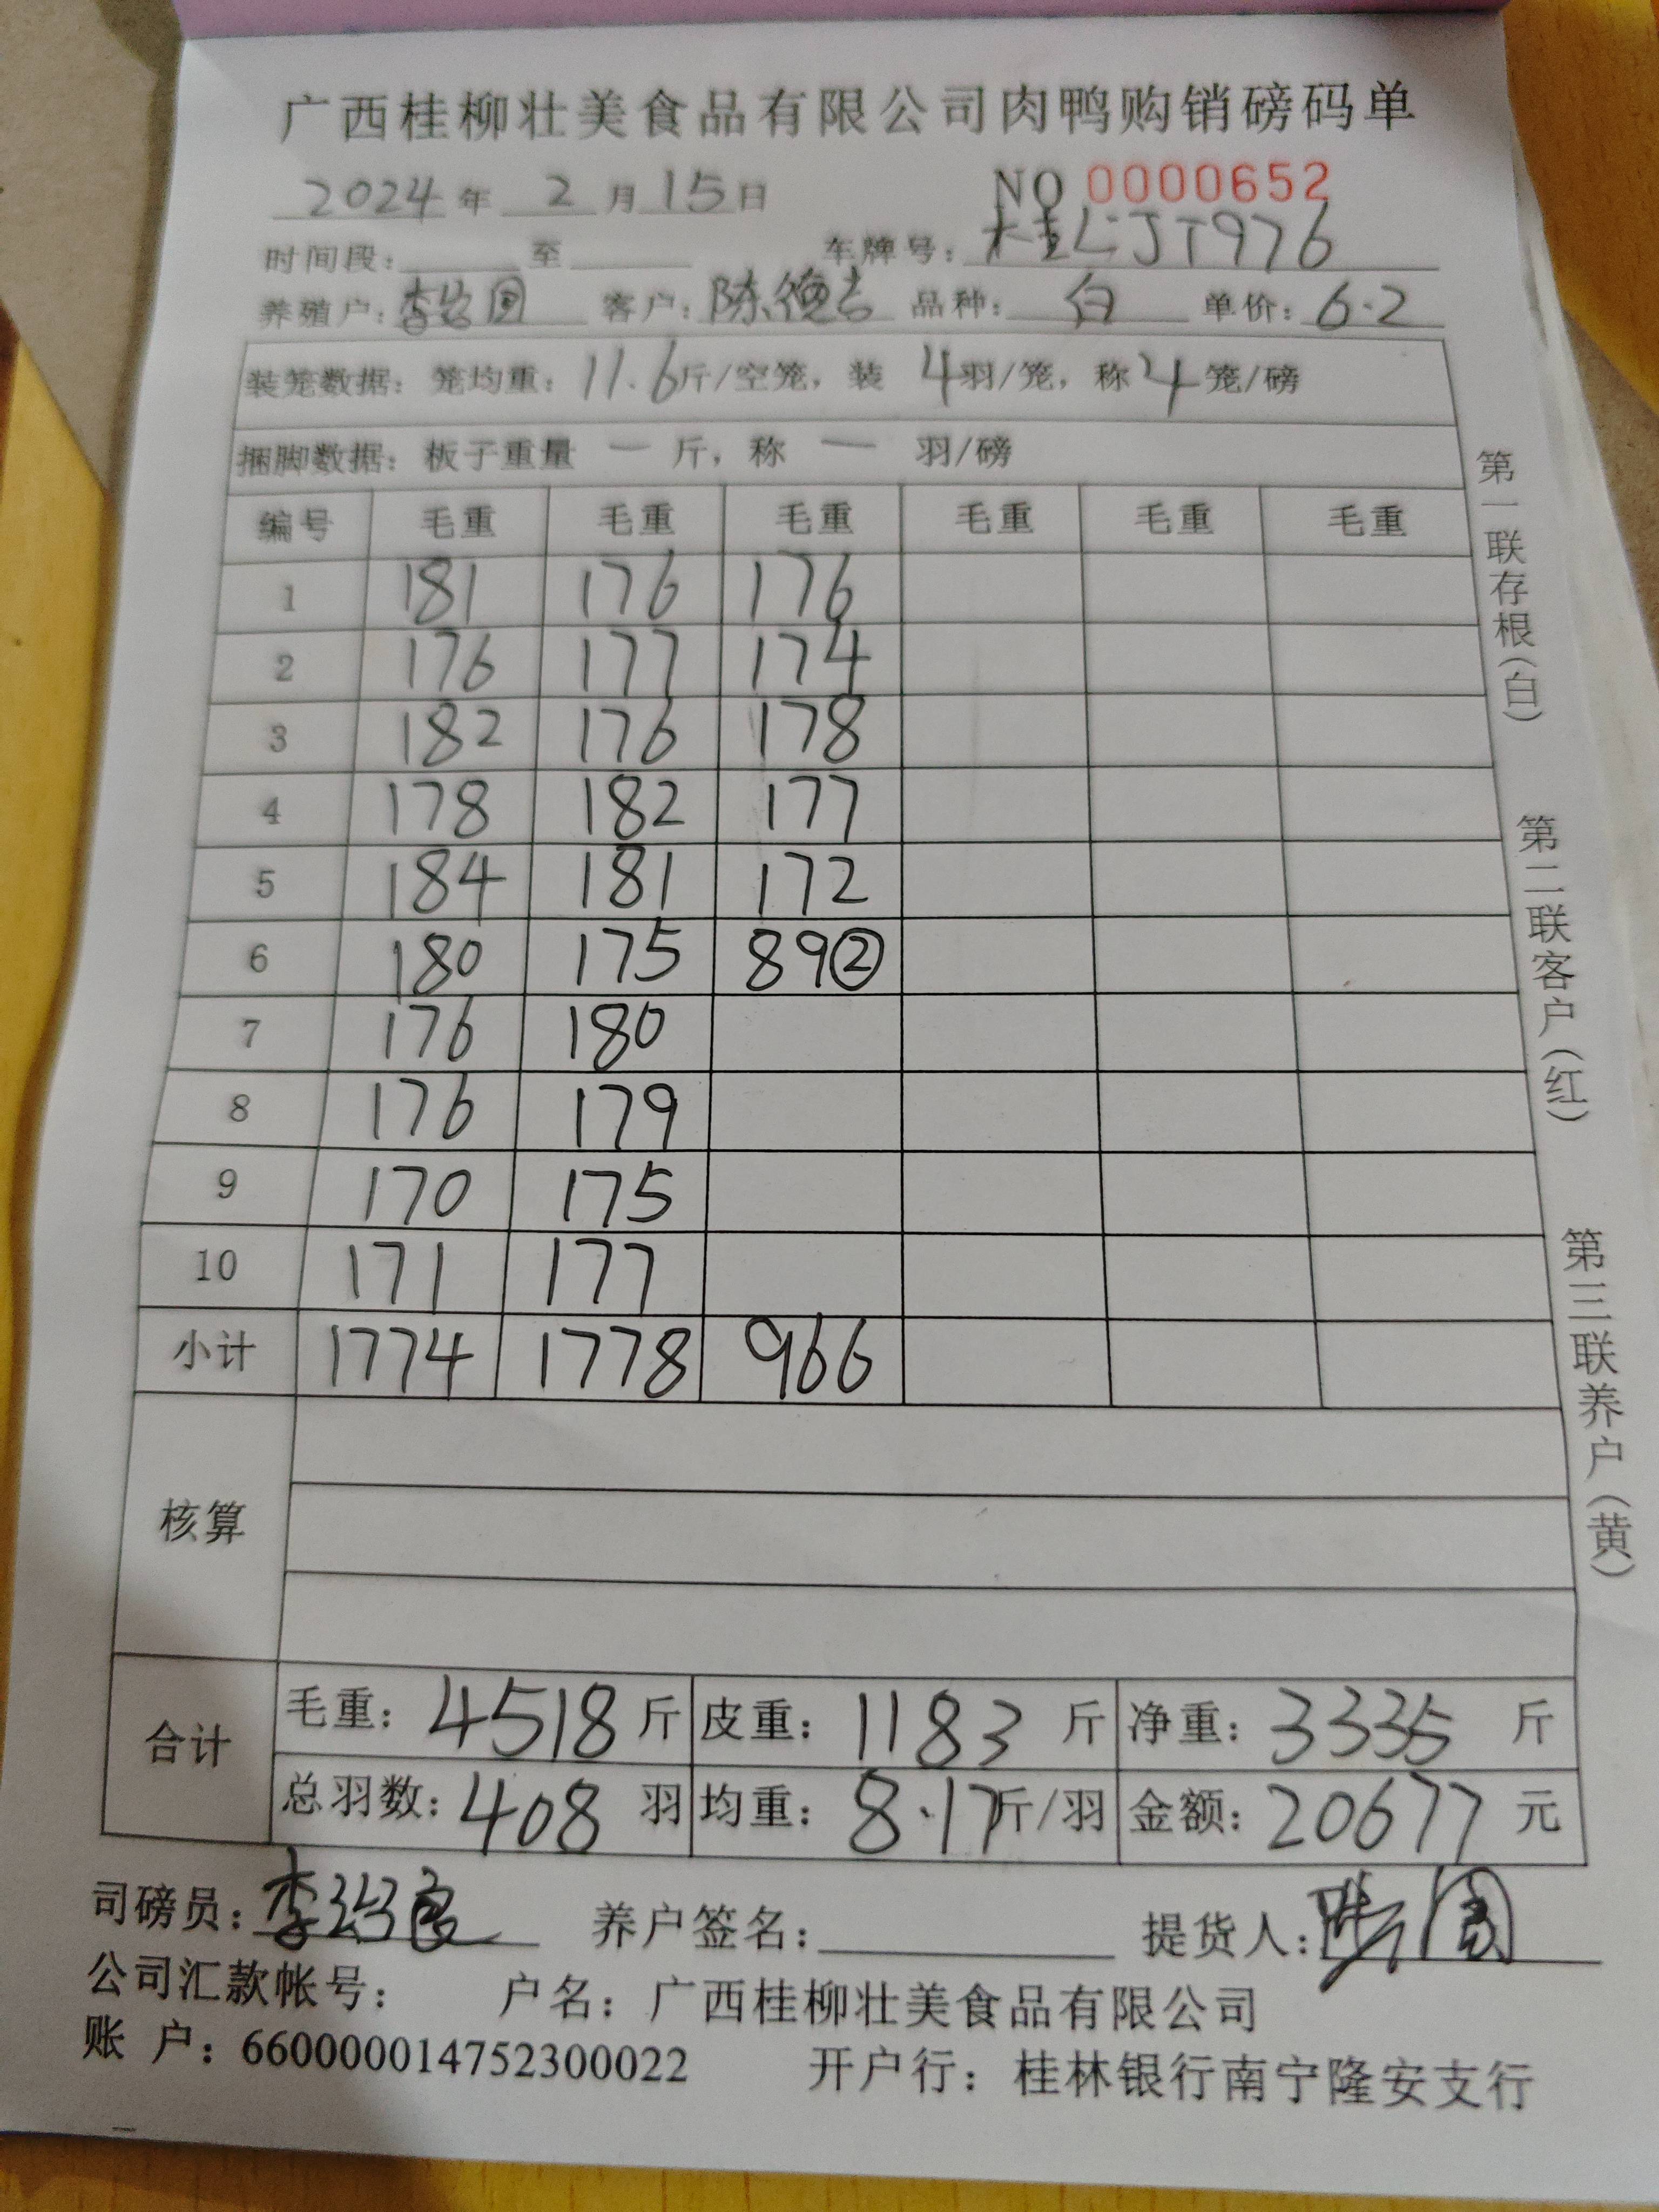 广西桂柳壮美食品有限公司肉鸭购销磅码单
2024年 2月15日 NO 0000652
时间段: 至 车牌号: 桂L·JT976
养殖户: 李 园 客户: 陈德吉 品种: 白 单价: 6.2
装笼数据: 笼均重: 11.6斤/空笼, 装 4羽/笼, 称4笼/磅
捆脚数据: 板子重量 一 斤, 称 一 羽/磅
编号 毛重 毛重 毛重 毛重 毛重 毛重
1 181 176 176
2 176 177 174
3 182 176 178
4 178 182 177
5 184 181 172
6 180 175 89②
7 176 180
8 176 179
9 170 175
10 171 177
小计 1774 1778 966
核算
合计
毛重: 4518斤 皮重: 1183 斤 净重: 3335 斤
总羽数: 408 羽 均重: 8.17斤/羽 金额: 20677 元
司磅员: 李绍良 养户签名: 提货人:
公司汇款帐号: 户名: 广西桂柳壮美食品有限公司
账 户: 660000014752300022 开户行: 桂林银行南宁隆安支行
第一联存根(白)
第二联客户(红)
第三联养户(黄)